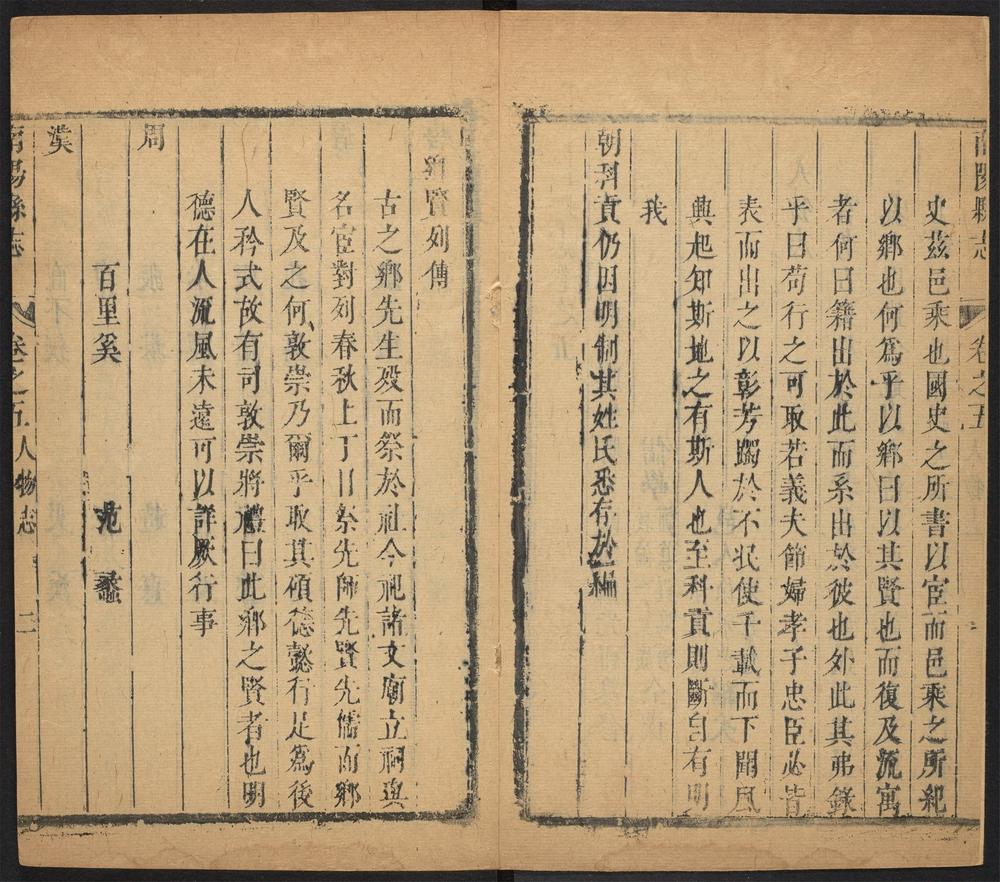 南陽縣志 卷之五
史茲邑乘也國史之所書以宦而邑乘之所紀
以鄉也何爲乎以鄉曰以其賢也而復及流寓
者何曰籍出於此而系出於彼也外此其弗錄
乎曰苟行之可取若義夫節婦孝子忠臣必皆
表而出之以彰芳躅於不泯使千載而下聞風
興起知斯地之有斯人也至科貢則斷自有明
我
朝科貢仍因明制其姓氏悉存於編
鄉賢列傳
古之鄉先生歿而祭於社今祀諸文廟立祠與
名宦對列春秋上丁日祭先師先賢先儒而鄉
賢及之何敦崇乃爾乎取其碩德懿行足爲後
人矜式故有司敦崇將禮曰此鄉之賢者也明
德在人流風未遠可以詳厥行事
周
百里奚 范蠡
漢
南陽縣志 卷之五 人物志 二